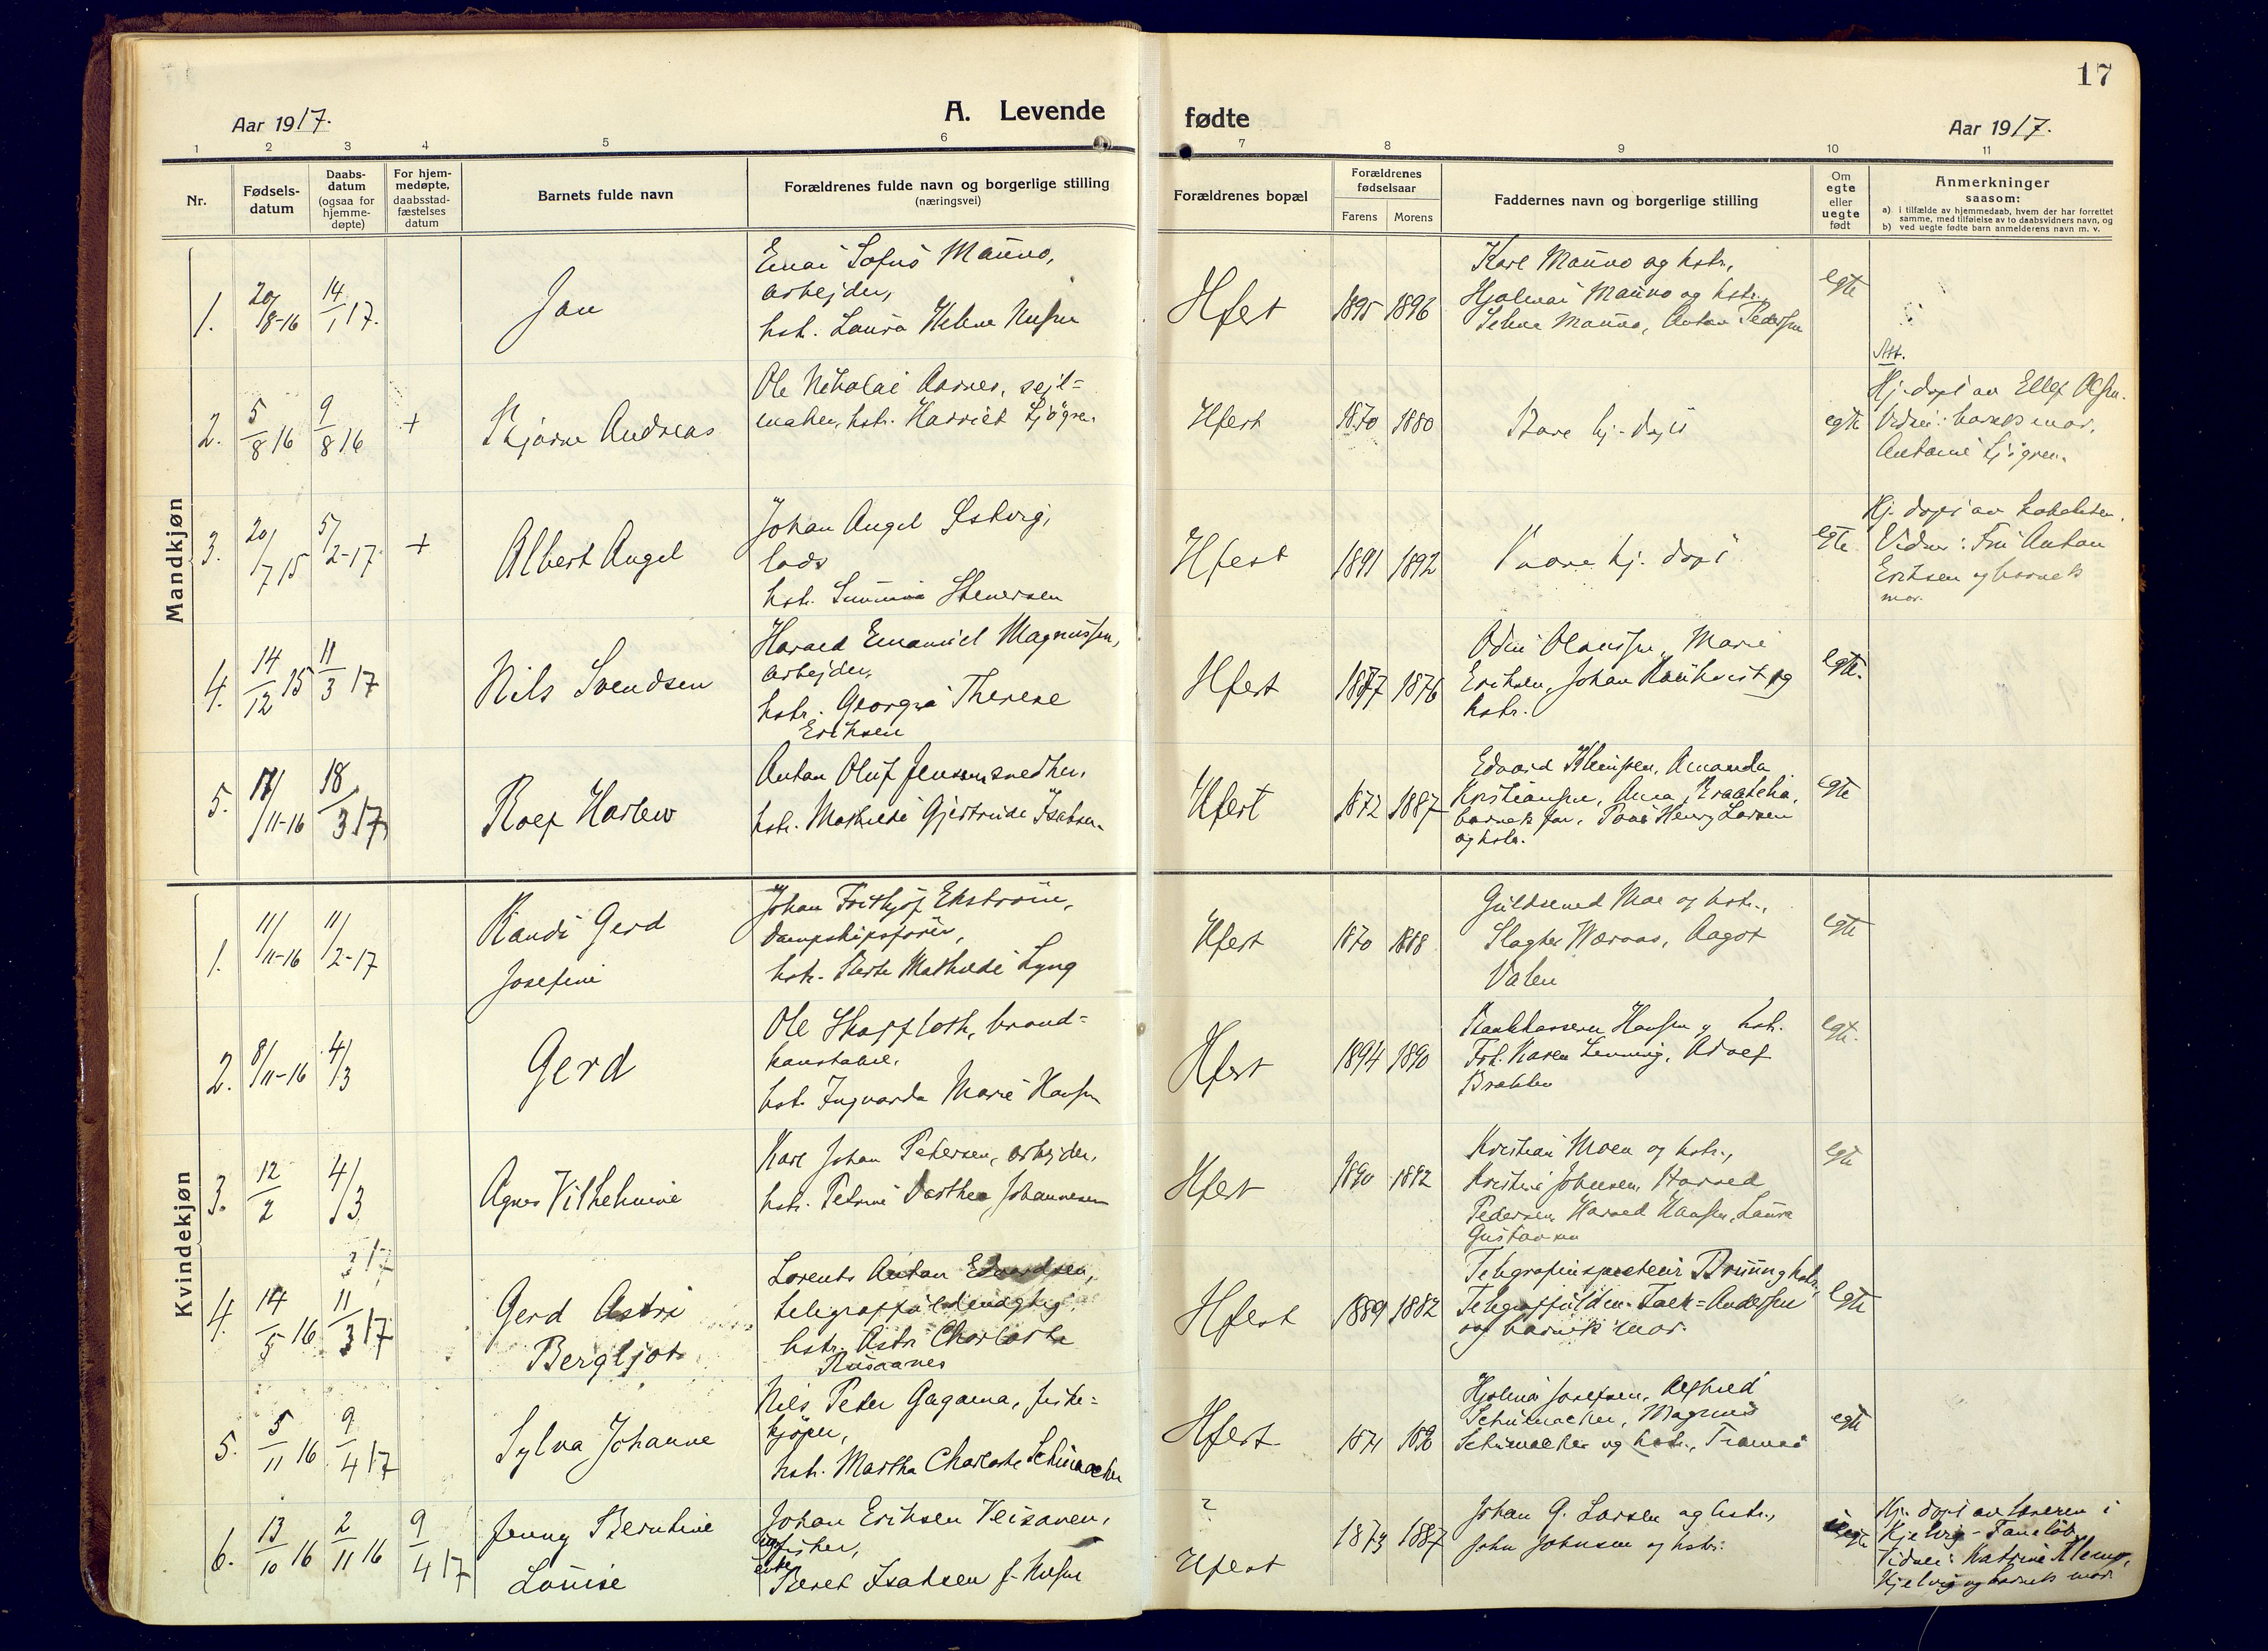 17
Aar 1917.
A. Levende
fødte
Aar 1917.
1 2 3 4 5 6 7 8 9 10 11
Nr.
Fødsels-
datum
Daabs-
datum
(ogsaa for
hjemme-
døpte)
For hjem-
medøpte,
daabsstad-
fæstelses
datum
Barnets fulde navn
Forældrenes fulde navn og borgerlige stilling
(næringsvei)
Forældrenes bopæl
Forældrenes
fødselsaar
Farens Morens
Faddernes navn og borgerlige stilling
Om
egte
eller
uegte
født
Anmerkninger
saasom:
a) i tilfælde av hjemmedaab, hvem der har forrettet
samme, med tilføielse av to daabsvidners navn, og
b) ved uegte fødte barn anmelderens navn m. v.
Mandkjøn
1. 20/8-16 14/1 17. Jan
Sofus Mauno,
arbejder,
hstr. Laura Helene
Hfest 1895 1896
Karl Mauno og hstr.,
Hjalmar Mauno og hstr.
Mauno, Anton Pedersen
egte
2. 5/8 16 9/8 16 + Andreas
Ole Nikolai Aarnes, sejl-
maker, hstr. Harriet Sjögren.
Hfest 1870 1880
Bare hj. døpt
egte
Att.
Hj. døpt av Ellef Olsen.
Vidner: barnets mor,
Sjögren.
3. 20/7 15 5/2-17. + Albert Angel
Johan Angel
lods
hstr. Stenersen
Hfest 1891 1892
hj. døpt
egte
Hj. døpt av
Vidner: Fru Anton
Eriksen og barnets
mor.
4. 14/12 15 11/3 17 Nils Svendsen
Harald Emanuel Magnussen,
arbejder,
hstr. Georgia Therese
Eriksen
Hfest 1877 1876
Odin Olaussen, Marie
Eriksen, Johan og
hstr.
egte.
5. 17/11-16 18/3 17 Rolf Harlew
Anton Oluf Jensen, snedker,
hstr. Mathilde Gjertrude Isaksen.
Hfest 1872 1887
Edvard Amanda
Kristiansen, Anna
barnets far, Henry Larsen
og hstr.
egte
Kvindekjøn
1. 11/11-16 11/2-17 Randi Gerd
Josefine
Johan Frithjof Ekstrøm,
dampskipsfører,
hstr. Mathilde Lyng
Hfest 1870 1888
Guldsmed Moe og hstr.,
Slagter Aagot
Valen
egte
2. 8/11-16 4/3 Gerd
Ole Skarfloth, brand-
konstabel,
hstr. Ingvarda Marie Hansen
Hfest 1894 1890
Bankkasserer Hansen og hstr.
Frk. Karen Adolf
egte.
3. 12/2 4/3 Agnes Vilhelmine
Karl Johan Petersen, arbejder,
hstr. Petrine Dorthea Johannesen
Hfest 1890 1892
Kristian Moen og hstr.,
Kristine Johnsen, Harald
Pedersen, Harald Hansen, Laura
Gustavsen
egte
3 17
4. 14/5 16 11/3 17 Gerd Astri
Bergljot
Lorents Anton Edvardsen,
hstr. Astri Charlotte
Hfest 1889 1882
Telegrafinspektør Bruun og hstr.
Falck-Andersen
og barnets mor.
egte
5. 5/11 16 9/4 17 Sylva Johanne
Nils Peter Gagama, fiske-
kjøper,
hstr. Martha Charlotte Schumacher
Hfest
Hjalmar Josefsen, Alfred
Schumacher, Magnus
Schumacher og hstr., Tromsø
egte
6. 13/10 16 2/11 16 9/4 17 Jenny Berntine
Louise
Johan Eriksen Veisanen,
fisker,
Beret Isaksen f.
?
Hfest 1873 1887
Johan G. Larsen og hstr.,
John Johnsen og hstr.
Hj. døpt av læreren i
Kjelvig
Vidner: Katrine
Kjelvig og barnets mor